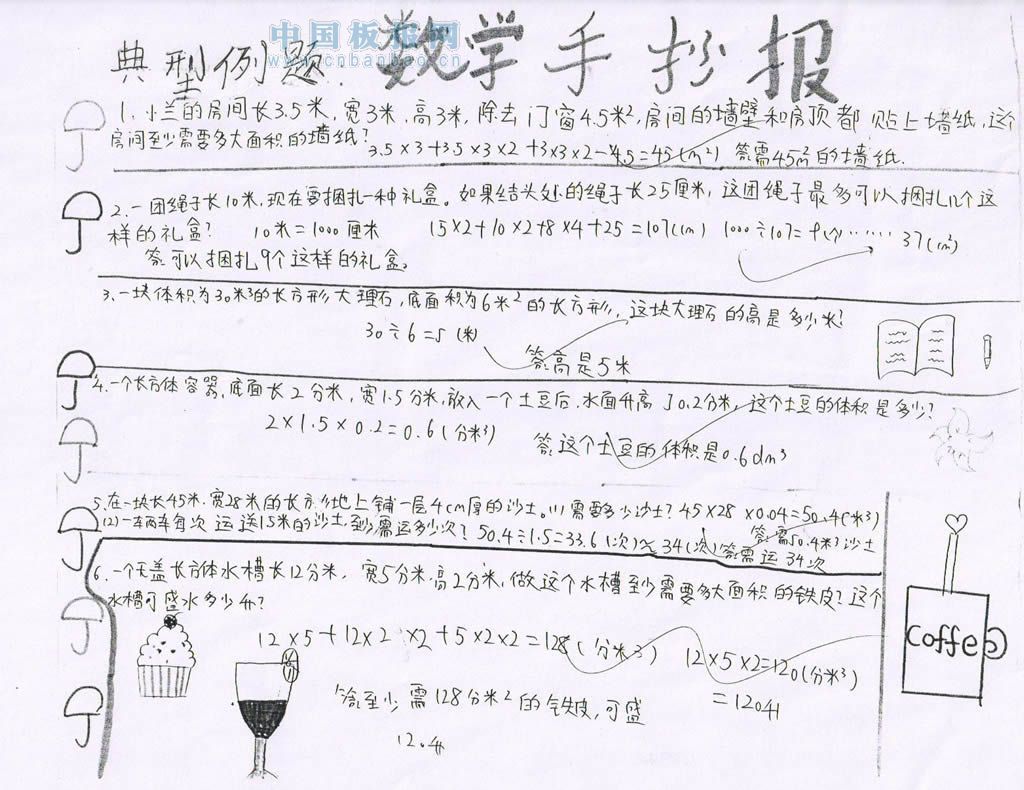 中国板报网
www.cnbanbao.cn
典型例题.
数学手抄报
1. 小兰的房间长3.5米,宽3米,高3米,除去门窗4.5米²,房间的墙壁和房顶都贴上墙纸,这
房间至少需要多大面积的墙纸?
3.5×3+3.5×3×2+3×3×2-4.5=45(m²) 答:需45m²的墙纸.
2.一团绳子长10米,现在要捆扎一种礼盒。如果结头处的绳子长25厘米,这团绳子最多可以捆扎几个这
样的礼盒? 10米=1000厘米 15×2+10×2+8×4+25=107(cm) 1000÷107=9(个)……37(cm²)
答:可以捆扎9个这样的礼盒。
3.一块体积为30米³的长方形大理石,底面积为6米²的长方形,这块大理石的高是多少米?
30÷6=5(米)
答:高是5米
4.一个长方体容器,底面长2分米,宽1.5分米,放入一个土豆后,水面升高了0.2分米,这个土豆的体积是多少?
2×1.5×0.2=0.6(分米³)
答:这个土豆的体积是0.6dm³
5.在一块长45米.宽28米的长方形地上铺一层4cm厚的沙土。(1)需要多少沙土? 45×28×0.04=50.4(米³)
答:需50.4米³沙土
(2)一车每次运送1.5米的沙土,至少需运多少次? 50.4÷1.5=33.6(次)≈34(次) 答:需运34次
6.一个无盖长方体水槽长12分米,宽5分米,高2分米,做这个水槽至少需要多大面积的铁皮?这个
水槽可盛水多少升?
12×5+12×2×2+5×2×2=128(分米3) 12×5×2=120(分米³)
=120升
答:至少需128分米²的铁皮,可盛
120升
Coffee